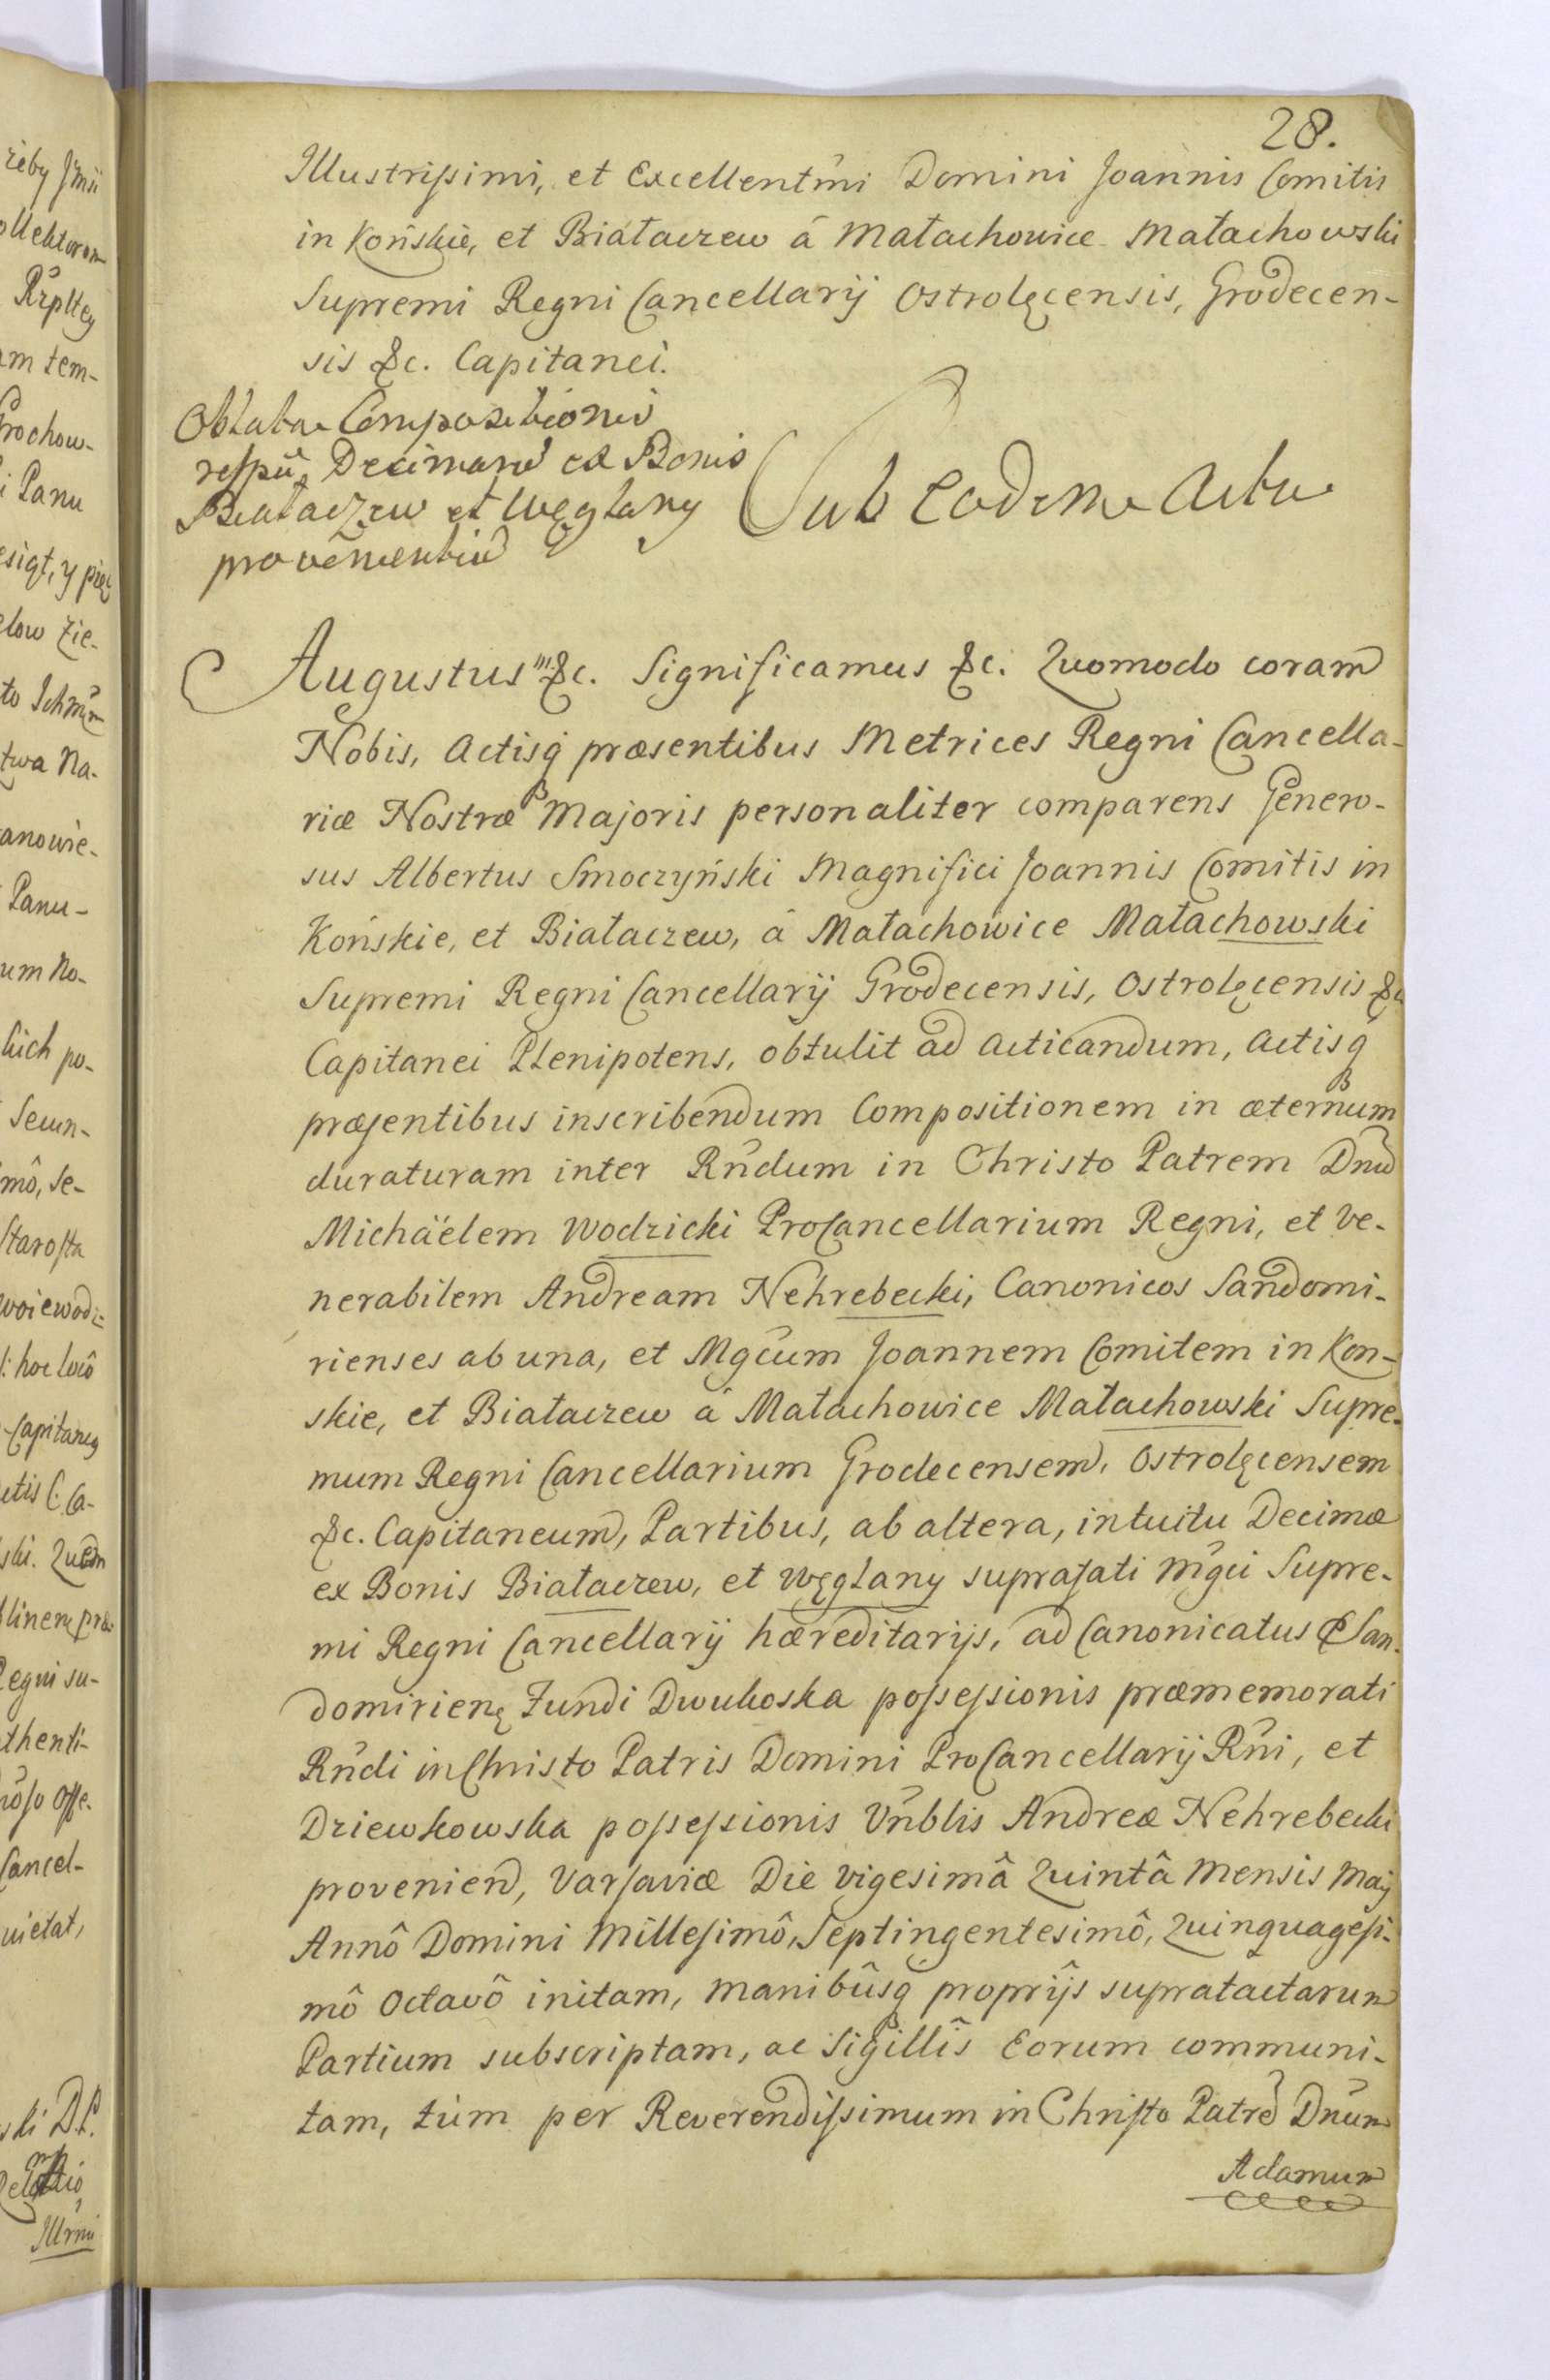 28.
Illustrissimi, et Excellentm̃i Domini Joannis Comitis
in Końskie, et Białaczew á Małachowice Małachowski
Supremi Regni Cancellarij Ostrolęcensis, Grodecen-
sis &c. Capitanei.
Oblata Compositionis
respũ Decimarũ ex Bonis
Białaczew et Węglany
provenientiũ
Sub eodem Actu
Augustus III &c. Significamus &c. Quomodo coram
Nobis, Actisq̃ præsentibus Metrices Regni Cancella-
riæ Nostræ Majoris personaliter comparens Genero-
sus Albertus Smoczyński Magnifici Joannis Comitis in
Końskie, et Białaczew, á Małachowice Małachowski
Supremi Regni Cancellarij Grodecensis, Ostrolęcensis &c
Capitanei Plenipotens, obtulit ad Acticandum, Actisq̃
præsentibus inscribendum Compositionem in æternum
duraturam inter Rñdum in Christo Patrem Dnũ
Michäélem Wodzicki ProCancellarium Regni, et Ve-
nerabilem Andream Nehrebecki, Canonicos Sandomi-
rienses ab una, et Mgc̃um Joannem Comitem in Kon-
skie, et Białaczew á Małachowice Małachowski Supre-
mum Regni Cancellarium Grodecensem, Ostrolęcensem
&c. Capitaneum, Partibus, ab altera, intuitu Decimæ
ex Bonis Białaczew, et Węglany suprafati Mg̃ci Supre-
mi Regni Cancellarij hæreditarijs, ad Canonicatus San-
domirienę Fundi Dwukoska possessionis præmemorati
Rñdi in Christo Patris Domini ProCancellarij Rñi, et
Dziewkowska possessionis Vñblis Andreæ Nehrebecki
provenien, Varsaviæ Die vigesimâ Quintâ Mensis Maij
Annô Domini Millesimô, Septingentesimô, Quinquagesi-
mô Octavô initam, manibûsq̃ proprijs supratactarum
Partium subscriptam, ac Sigillîs Eorum communi-
tam, túm per Reverendissimum in Christo Patrẽ Dnũm
Adamum